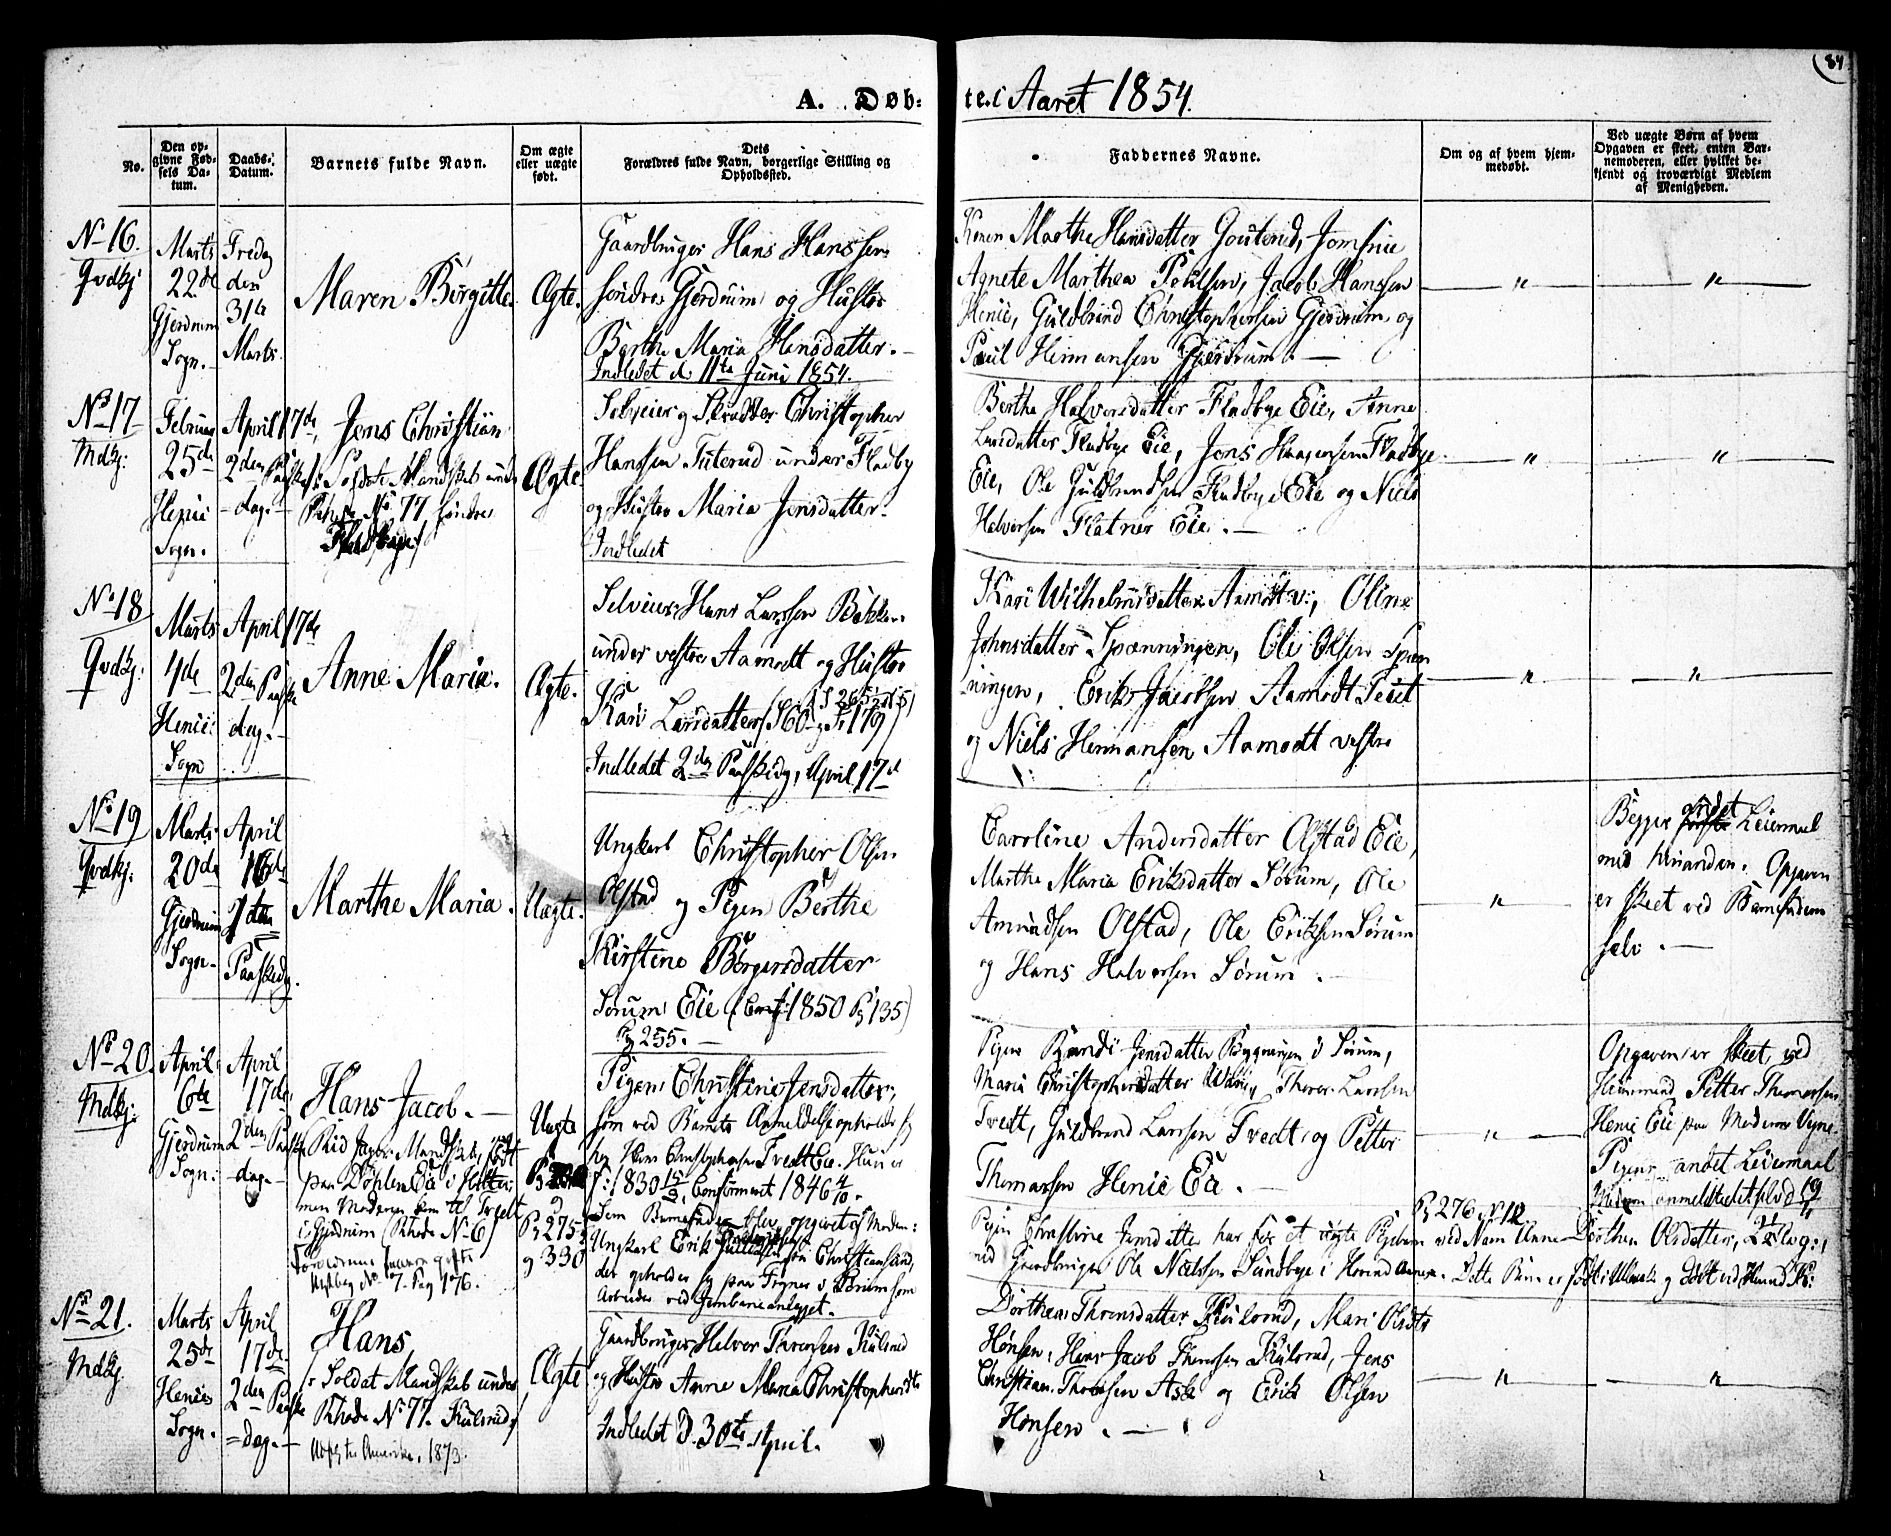 84
A. Døb: te. i Aaret 1854.
No.
Den opgivne Fødsels Datum.
Daabs-Datum.
Barnets fulde Navn.
Om ægte eller uægte født.
Dets Forældres fulde Navn, borgerlige Stilling og Opholdssted.
Faddernes Navne.
Om og af hvem hjemmedøbt.
Ved uægte Børn af hvem Opgaven er skeet, enten Barnemoderen, eller hvilket bekjendt og troværdigt Medlem af Menigheden.
No 16.
Qvdkj
Marts
22de
Gjerdrum
Sogn.
Fredag
den
31te
Marts
Maren Birgitte.
Ægte.
Gaardbruger Hans Hanssen
søndre Gjerdrum og Hustro
Berthe Maria Hansdatter.
Indledet d. 11te Juni 1854.
Konen Marthe Hansdatter Jomfrue
Agnete Marthea Pohlsen, Jacob Hanssen
Henie, Guldbrand Christophersen Gjerdrum og
Paul Hermansen Gjerdrum.
No 17
Mdkj:
Februar
25de
Henie
Sogn.
April 17de,
2den Paaske
dag.
Jens Christian
Soldat Mandskab under
Rhode No. 77 søndre
Fladbye
Ægte
Selveier og Skrædder Christopher
Hanssen Tuterud under Fladby
og Hustro Maria Jensdatter.
Indledet
Berthe Halvorsdatter Fladbye Eie, Anne
Larsdatter Fladbye Eie, Jens Haagensen Fladbye
Eie, Ole Guldbrandsen Fladbye Eie og Niels
Halvorsen Flatner Eie.
No 18
Qvdkj.
Marts
4de
Henie
Sogn
April 17de
2den Paaske
dag.
Anne Maria.
Ægte.
Selveier Hans Larssen Bakken
under vestre Aamodt og Hustro
Kari Larsdatter
Indledet 2den Paaskedg, April 17d
Kari Wilhelmsdatter Aamodt v:, Oline
Johnsdatter Spænningen, Ole Olsen Spæn
ningen, Erik Jacobsen Aamodt
og Niels Hermansen Aamodt vestre
No 19
Qvdkj.
Marts
20de
Gjerdrum
Sogn.
April
16de
1den
Paaskedg.
Marthe Maria.
Uægte.
Ungkarl Christopher Olsen
Olstad og Pigen Berthe
Kirstine Børgersdatter
Sørum Eie (Conf: 1850 Pg 135)
Pg 255.
Caroline Andersdatter Olstad Eie,
Marthe Maria Eriksdatter Sørum, Ole
Amundsen Olstad, Ole Eriksen Sørum
og Hans Halvorsen Sørum.
Begges andet Leiermaal
med hinanden. Opgaven
er skeet ved Barnefaderen
selv.
No 20.
Mdkj:
April
6te
Gjerdrum
Sogn.
April
17de
2den Paaske
dag.
Hans Jacob.
født
paa Døhlen Eie i Holter
men Moderen kom til Tvedt
i Gjerdrum (Rhode No 6)
7. Pag 176.
Uægte
Pg 275
og 330
Pigen Christine Jensdatter,
som ved Barnets Anmeldelse opholdt sig
hos Hans Christophersen Tvedt Eie. Hun er
f: 1830 15/2, Confirmeret 1846 4/10.
Som Barnefader blev opgivet af Moderen:
Ungkarl Erik fra Christiansand,
der opholder sig paa i Sørum som
Arbeider ved Jernbaneanlægget.
Pigen Randi Jensdatter Bygningen i Sørum,
Maria Christophersdatter Thorer Larssen
Tvedt, Guldbrand Larssen Tvedt og Petter
Thomassen Henie Eie.
Opgaven er skeet ved
Huusmand Petter Thomassen
Henie Eie paa Moderens Vegne.
Pigens andet Leiermaal
Pg 276 No 12
Pigen Christine Jensdatter har før et uægte Pigebarn ved Navn Anne Dorthea Olsdatter,
ved Gaardbruger Ole Nielssen Sundbye i Hovind Annex. Dette Barn er født i Ullensaker og døbt ved Hovind K:
No 21.
Mdkj.
Marts
25de
Henie
Sogn.
April
17de
2den Paaske
dag.
Hans
Soldat Mandskab under
Rhode No 77. Kulsrud
Udfl. til Amerika, 1873.
Ægte
Gaardbruger Halvor Thorersen Kulsrud
og Hustro Anne Maria Christophersdtr
Indledet D. 30te April.
Dorthea Thoresdatter Kulsrud, Mari Olsdtr
Hønsen, Hans Jacob Thoresen Kulsrud, Jens
Christian Thoresen Ask og Erik Olsen
Hønsen.